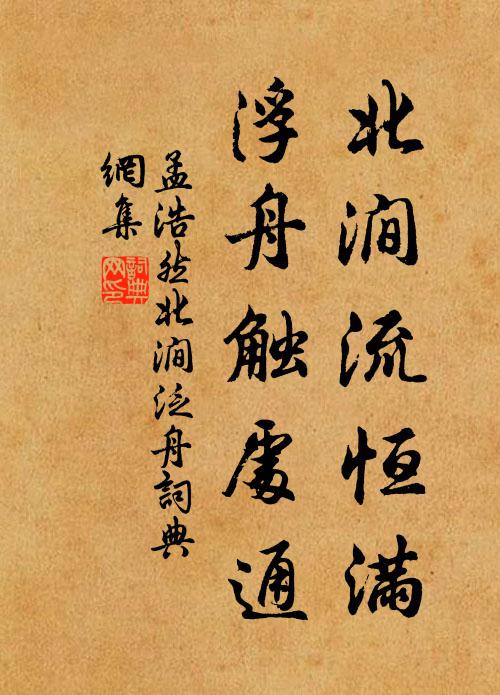 北涧流恒满
浮舟触處通
孟浩然北涧泛舟詞典
網集
詞典
网印